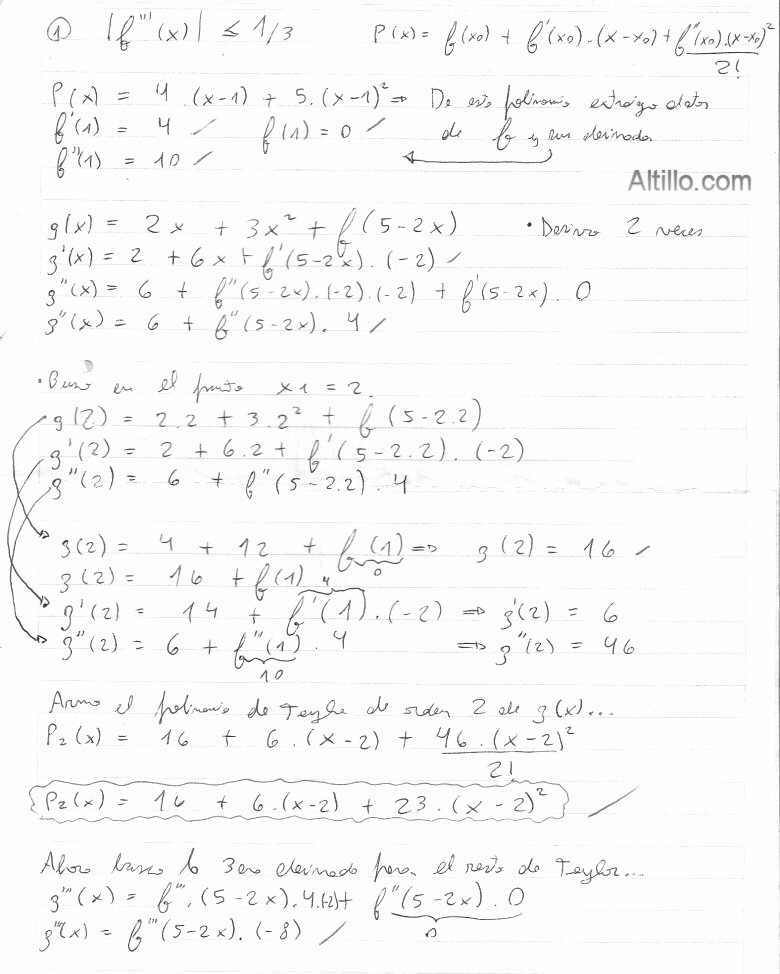 ① |f'''(x)| ≤ 1/3 P(x) = f(x₀) + f'(x₀).(x-x₀) + f''(x₀).(x-x₀)²/2!
P(x) = 4.(x-1) + 5.(x-1)² ⇒ De este polinomio extraigo datos
f'(1) = 4 ✓ f(1) = 0 ✓ de f y sus derivadas
f''(1) = 10 ✓ ←
Altillo.com
g(x) = 2x + 3x² + f(5-2x) • Derivo 2 veces
g'(x) = 2 + 6x + f'(5-2x).(-2) ✓
g''(x) = 6 + f''(5-2x).(-2).(-2) + f'(5-2x).0
g''(x) = 6 + f''(5-2x).4 ✓
• Busco en el punto x1 = 2.
g(2) = 2.2 + 3.2² + f(5-2.2)
g'(2) = 2 + 6.2 + f'(5-2.2).(-2)
g''(2) = 6 + f''(5-2.2).4
g(2) = 4 + 12 + f(1) ⇒ g(2) = 16 ✓
0
g(2) = 16 + f(1)
4
g'(2) = 14 + f'(1).(-2) ⇒ g'(2) = 6
g''(2) = 6 + f''(1).4 ⇒ g''(2) = 46
10
Armo el polinomio de Taylor de orden 2 de g(x)...
P₂(x) = 16 + 6.(x-2) + 46.(x-2)²/2!
P₂(x) = 16 + 6.(x-2) + 23.(x-2)² ✓
Ahora busco la 3era derivada para el resto de Taylor...
g'''(x) = f'''.(5-2x).4.(-2) + f''(5-2x).0
0
g'''(x) = f'''(5-2x).(-8) ✓